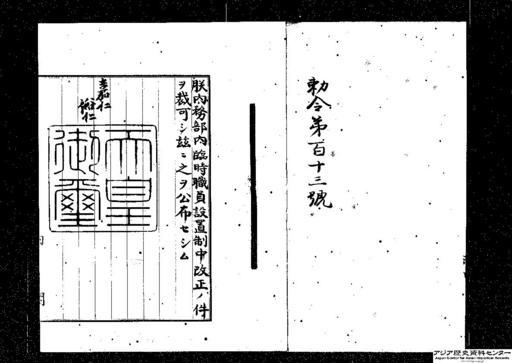 勅令第百十三號
朕内務部内臨時職員設置制中改正ノ件
ヲ裁可シ茲ニ之ヲ公布セシム
嘉仁
裕仁
天皇
御璽
内
閣
アジア歴史資料センター
Japan Center for Asian Historical Records